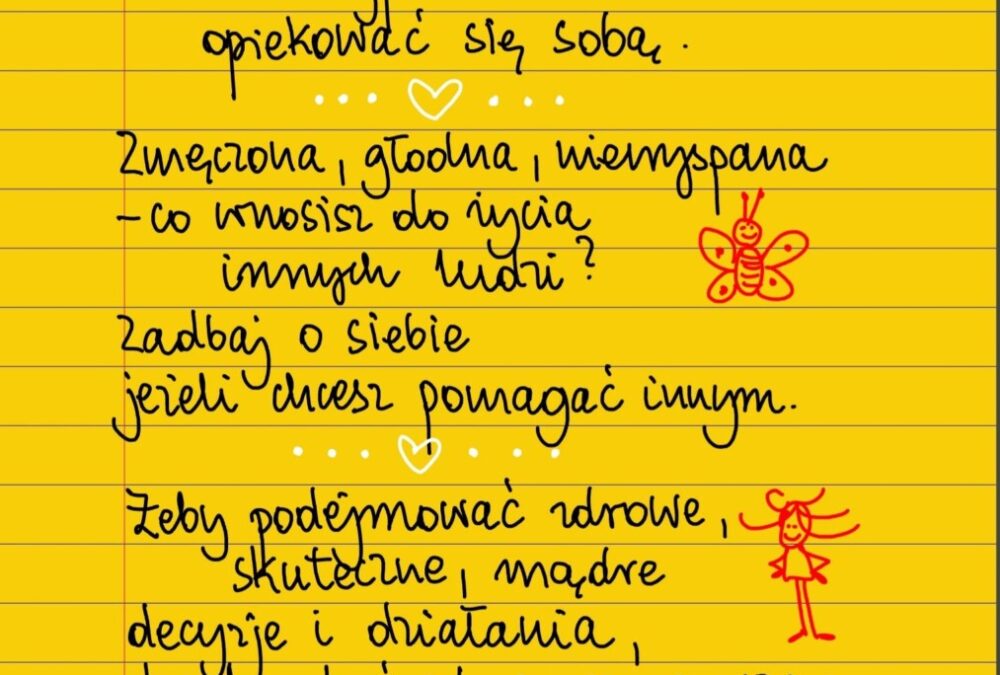 opiekować się sobą.
Zmęczona, głodna, niewyspana
- co wnosisz do życia
innych ludzi?
Zadbaj o siebie
jeżeli chcesz pomagać innym.
Żeby podejmować zdrowe,
skuteczne, mądre
decyzje i działania,